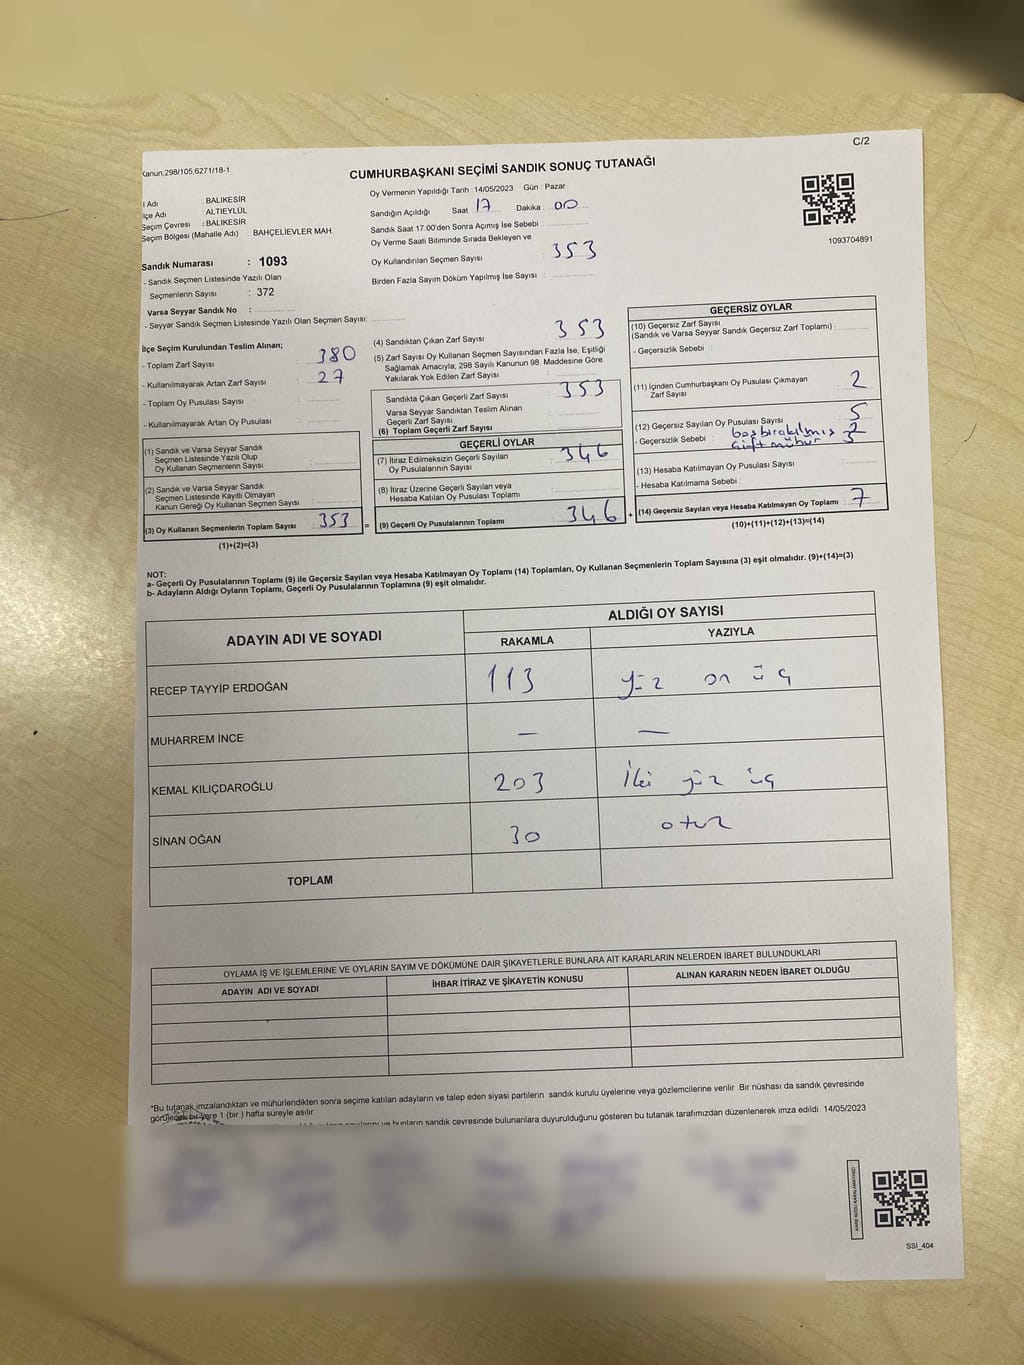 C/2
Kanun:298/105,6271/18-1
CUMHURBAŞKANI SEÇİMİ SANDIK SONUÇ TUTANAĞI
l Adı : BALIKESİR
lçe Adı : ALTIEYLÜL
Seçim Çevresi : BALIKESİR
Seçim Bölgesi (Mahalle Adı) : BAHÇELİEVLER MAH.
Sandık Numarası : 1093
- Sandık Seçmen Listesinde Yazılı Olan
Seçmenlerin Sayısı : 372
Varsa Seyyar Sandık No :
- Seyyar Sandık Seçmen Listesinde Yazılı Olan Seçmen Sayısı:
Oy Vermenin Yapıldığı Tarih : 14/05/2023 Gün : Pazar
Sandığın Açıldığı Saat 17 Dakika : 00
Sandık Saat 17:00'den Sonra Açımış İse Sebebi :
Oy Verme Saati Bitiminde Sırada Bekleyen ve
Oy Kullandırılan Seçmen Sayısı 353
Birden Fazla Sayım Döküm Yapılmış İse Sayısı :
1093704891
İlçe Seçim Kurulundan Teslim Alınan;
- Toplam Zarf Sayısı 380
- Kullanılmayarak Artan Zarf Sayısı 27
- Toplam Oy Pusulası Sayısı :
- Kullanılmayarak Artan Oy Pusulası :
(1) Sandık ve Varsa Seyyar Sandık
Seçmen Listesinde Yazılı Olup
Oy Kullanan Seçmenlerin Sayısı :
(2) Sandık ve Varsa Seyyar Sandık
Seçmen Listesinde Kayıtlı Olmayan
Kanun Gereği Oy Kullanan Seçmen Sayısı :
(3) Oy Kullanan Seçmenlerin Toplam Sayısı : 353 =
(1)+(2)=(3)
(4) Sandıktan Çıkan Zarf Sayısı 353
(5) Zarf Sayısı Oy Kullanan Seçmen Sayısından Fazla İse, Eşitliği
Sağlamak Amacıyla; 298 Sayılı Kanunun 98. Maddesine Göre
Yakılarak Yok Edilen Zarf Sayısı :
Sandıkta Çıkan Geçerli Zarf Sayısı 353
Varsa Seyyar Sandıktan Teslim Alınan
Geçerli Zarf Sayısı :
(6) Toplam Geçerli Zarf Sayısı :
GEÇERLİ OYLAR
(7) İtiraz Edilmeksizin Geçerli Sayılan
Oy Pusulalarının Sayısı 346
(8) İtiraz Üzerine Geçerli Sayılan veya
Hesaba Katılan Oy Pusulası Toplamı :
(9) Geçerli Oy Pusulalarının Toplamı 346 +
GEÇERSİZ OYLAR
(10) Geçersiz Zarf Sayısı
(Sandık ve Varsa Seyyar Sandık Geçersiz Zarf Toplamı) :
- Geçersizlik Sebebi :
(11) İçinden Cumhurbaşkanı Oy Pusulası Çıkmayan
Zarf Sayısı 2
(12) Geçersiz Sayılan Oy Pusulası Sayısı 5
- Geçersizlik Sebebi : boş bırakılmış 2
çift mühür 3
(13) Hesaba Katılmayan Oy Pusulası Sayısı :
- Hesaba Katılmama Sebebi :
(14) Geçersiz Sayılan veya Hesaba Katılmayan Oy Toplamı : 7
(10)+(11)+(12)+(13)=(14)
NOT:
a- Geçerli Oy Pusulalarının Toplamı (9) ile Geçersiz Sayılan veya Hesaba Katılmayan Oy Toplamı (14) Toplamları, Oy Kullanan Seçmenlerin Toplam Sayısına (3) eşit olmalıdır. (9)+(14)=(3)
b- Adayların Aldığı Oyların Toplamı, Geçerli Oy Pusulalarının Toplamına (9) eşit olmalıdır.
ADAYIN ADI VE SOYADI ALDIĞI OY SAYISI
RAKAMLA YAZIYLA
RECEP TAYYİP ERDOĞAN 113 yüz on üç
MUHARREM İNCE — —
KEMAL KILIÇDAROĞLU 203 İki yüz üç
SİNAN OĞAN 30 otuz
TOPLAM
OYLAMA İŞ VE İŞLEMLERİNE VE OYLARIN SAYIM VE DÖKÜMÜNE DAİR ŞİKAYETLERLE BUNLARA AİT KARARLARIN NELERDEN İBARET BULUNDUKLARI
ADAYIN ADI VE SOYADI İHBAR İTİRAZ VE ŞİKAYETİN KONUSU ALINAN KARARIN NEDEN İBARET OLDUĞU
*Bu tutanak imzalandıktan ve mühürlendikten sonra seçime katılan adayların ve talep eden siyasi partilerin sandık kurulu üyelerine veya gözlemcilerine verilir. Bir nüshası da sandık çevresinde
görülecek bir yere 1 (bir ) hafta süreyle asılır.
ve bunların sandık çevresinde bulunanlara duyurulduğunu gösteren bu tutanak tarafımızdan düzenlenerek imza edildi. 14/05/2023
KARE KODU KARALAMAYINIZ!
SSI_404